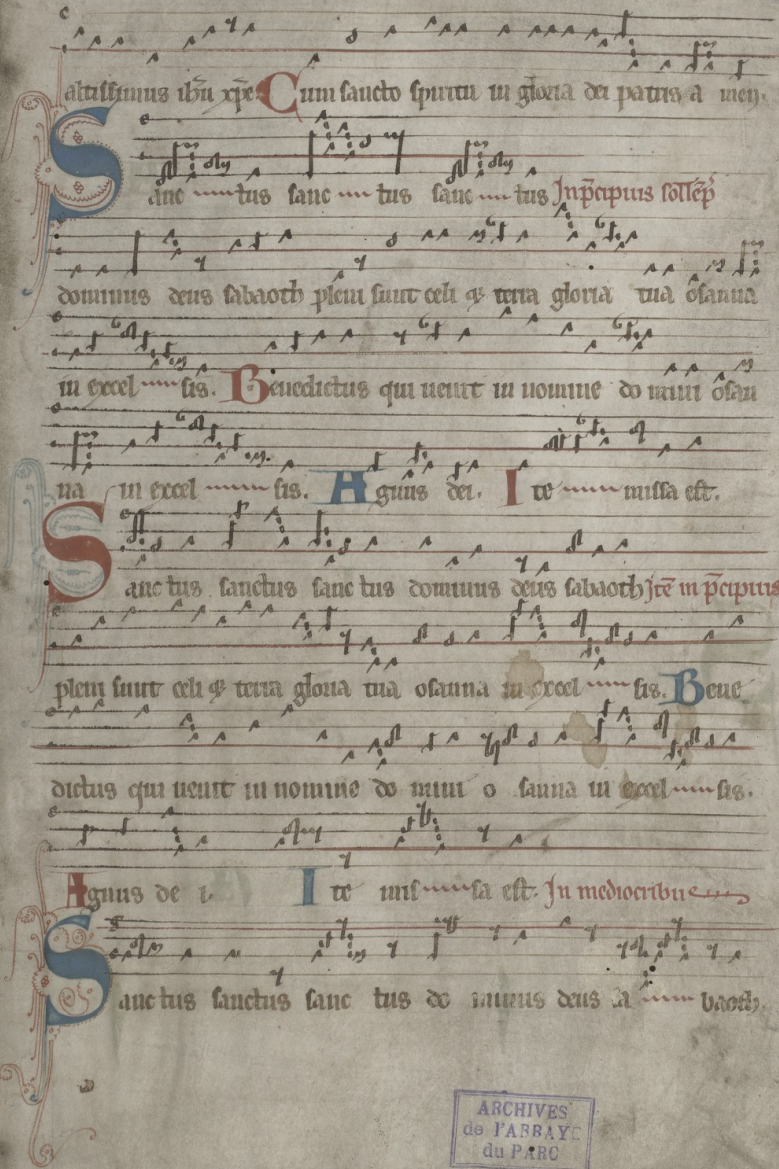 altissimus ih̄u xp̄e Cum sancto spiritu in gloria dei patris a men.
Sanc tus sanc tus sanc tus In p̄cipuis sollēp̄
dominus deus sabaoth pleni sunt celi & terra gloria tua ōsanna
in excel sis. Benedictus qui uenit in nomine do mini ōsan
na in excel sis. Agnus dei. Ite missa est.
Sanc tus sanctus sanc tus dominus deus sabaoth Itē in p̄cipuis
pleni sunt celi & terra gloria tua osanna in excel sis. Bene
dictus qui uenit in nomine do mini o sanna in excel sis.
Agnus de i. Ite mis sa est. In mediocribus
Sanctus sanctus sanc tus do minus deus sa baoth
ARCHIVES
de l'ABBAYE
du PARC